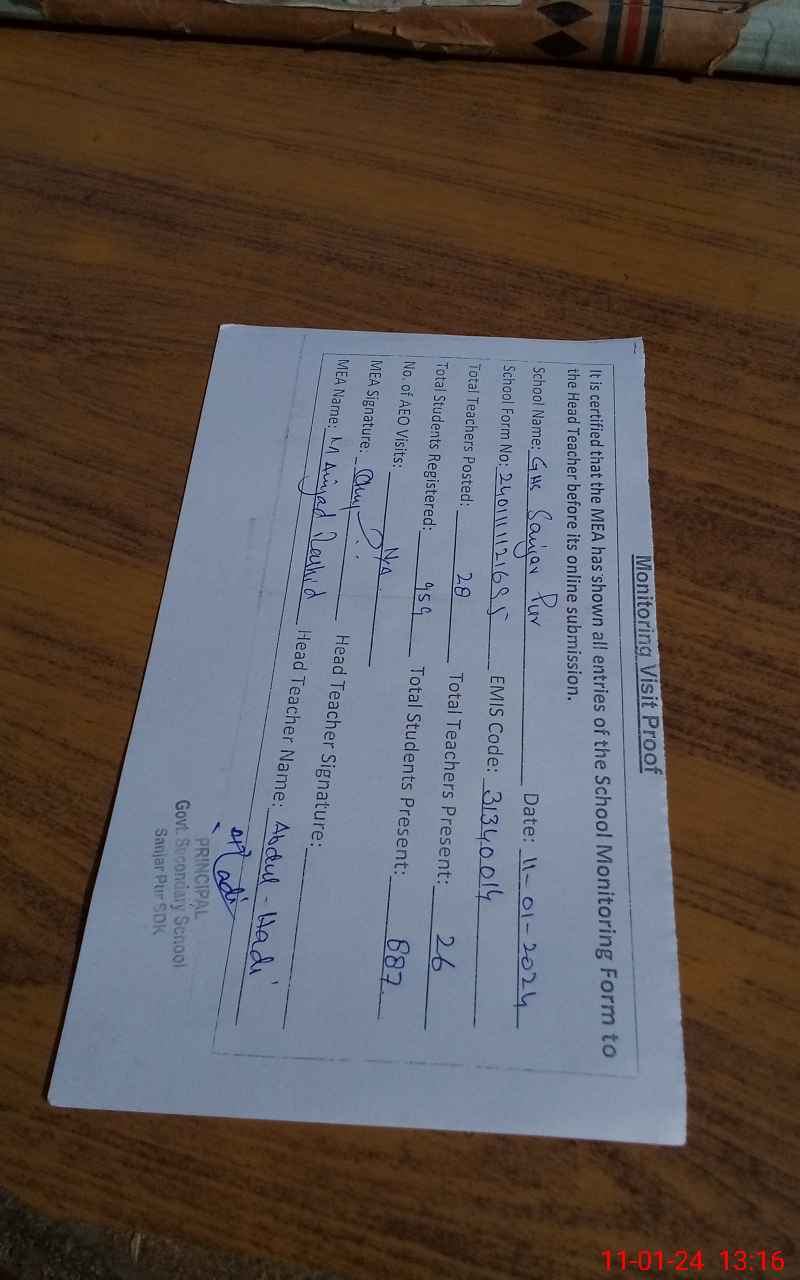 Monitoring Visit Proof
It is certified that the MEA has shown all entries of the School Monitoring Form to
the Head Teacher before its online submission.
School Name: GHS Sanjar Pur Date: 11-01-2024
School Form No: EMIS Code: 31340014
Total Teachers Posted: 28 Total Teachers Present: 26
Total Students Registered: 959 Total Students Present: 887
No. of AEO Visits: N/A
MEA Signature: Head Teacher Signature:
MEA Name: M Amjad Rashid Head Teacher Name: Abdul-Hadi
PRINCIPAL
Govt. Secondary School
Sanjar Pur SDK
11-01-24 13:16